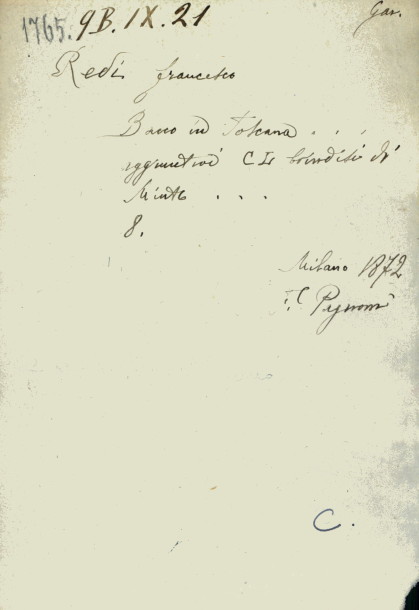 1765. 9B.IX.21 Gar.
Redi Francesco
Bacco in Toscana . . .
aggiuntivi CL brindisi di
Minto . . .
8.
Milano 1872
Pagnoni
C.